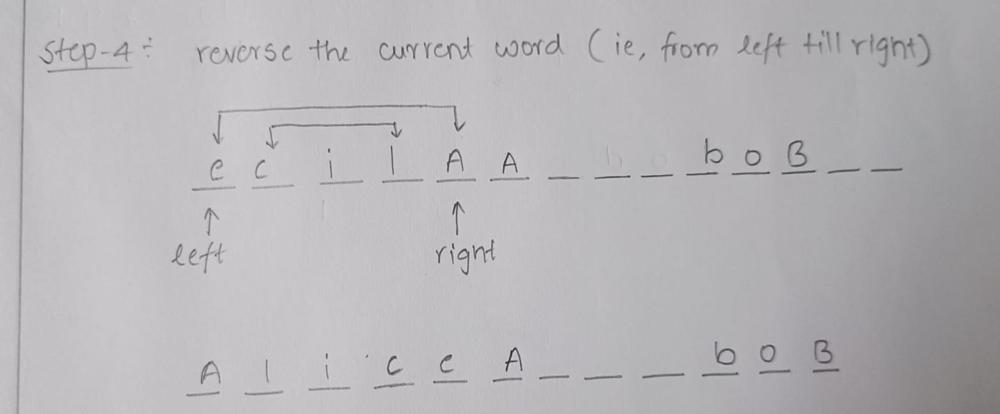 Step-4÷ reverse the current word (ie, from left till right)
e c i l A A _ _ _ b o B _ _
left right
A l i c e A _ _ _ b o B